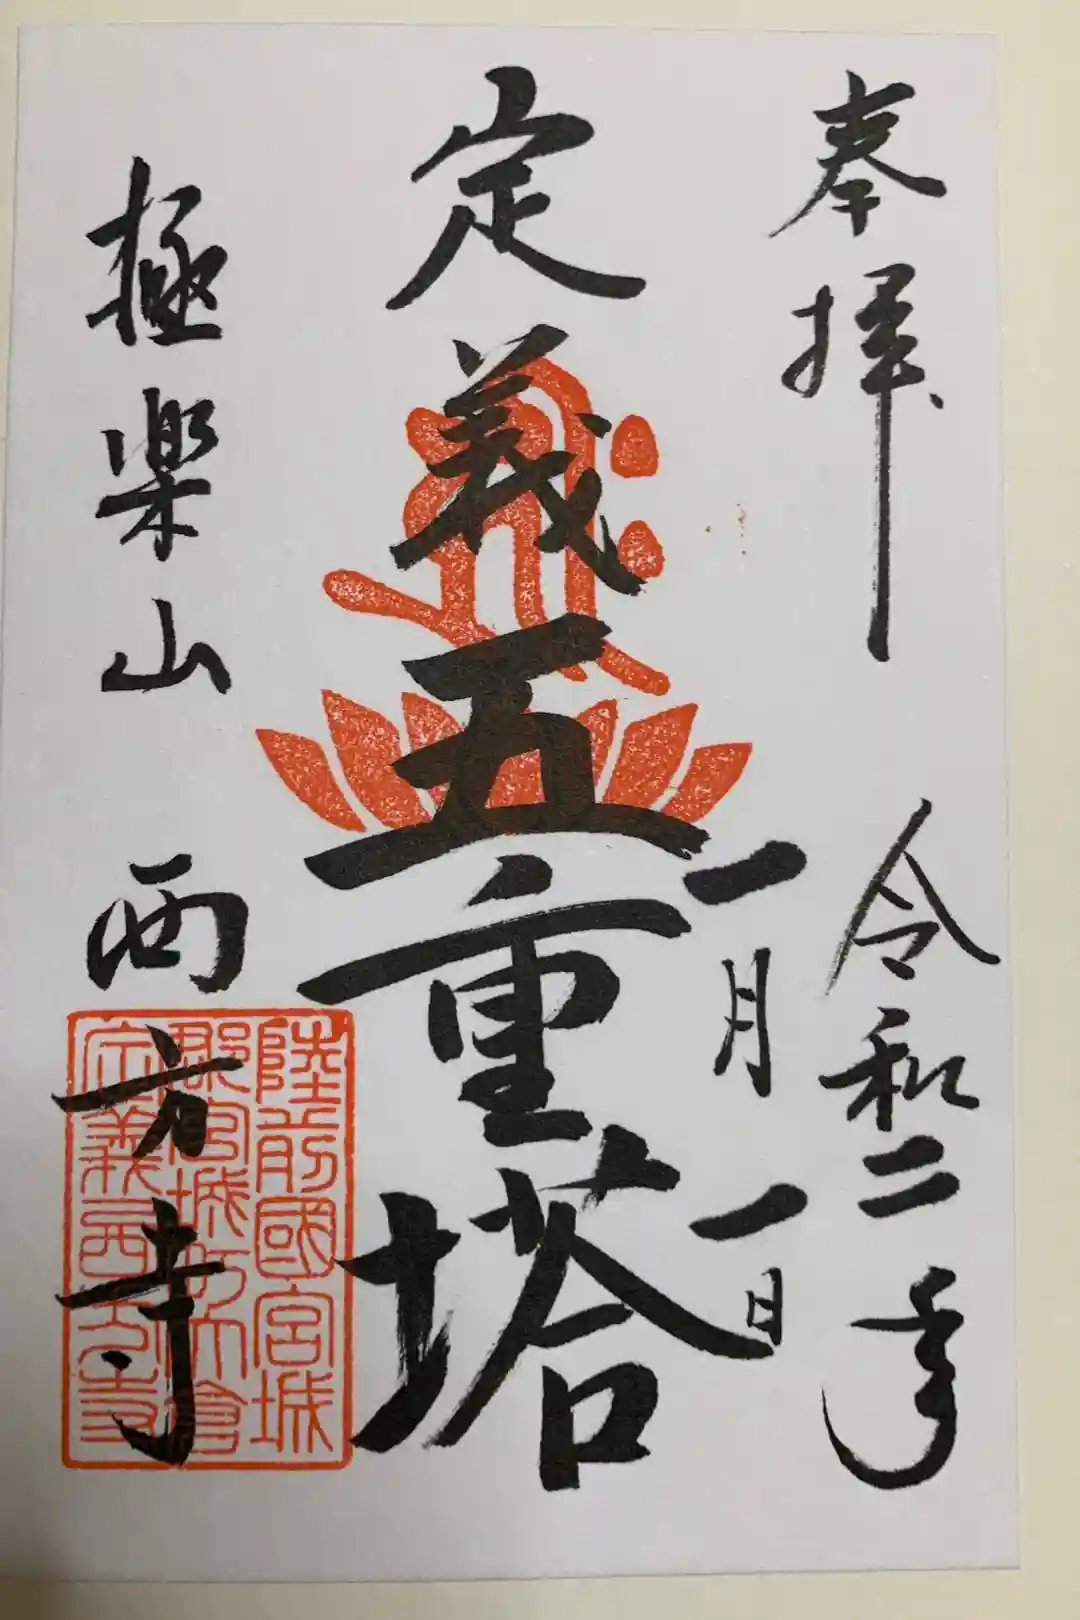 奉拝
令和二年
一月一日
定義五重塔
極楽山
西方寺
陸前國宮城
郡宮城町大倉
定義西方寺